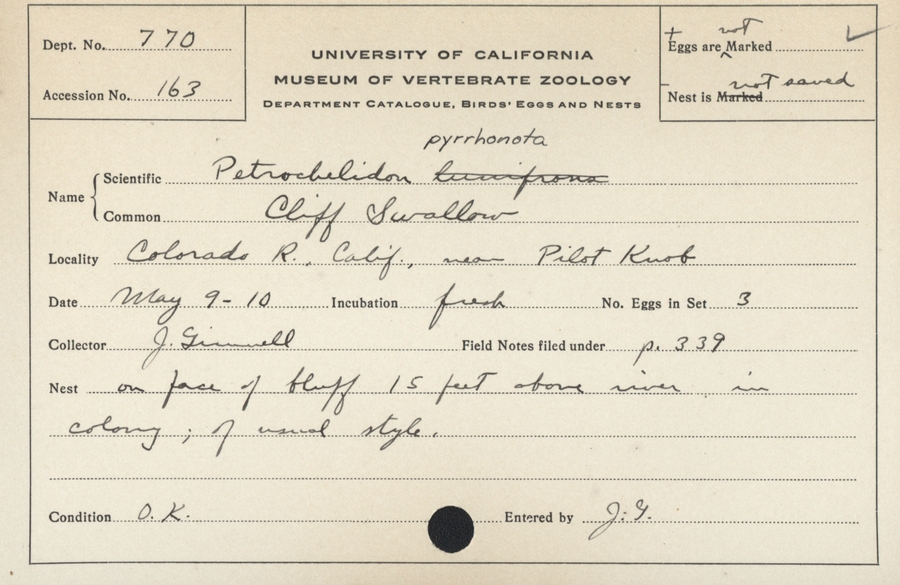 Dept. No. 770
Accession No. 163
UNIVERSITY OF CALIFORNIA
MUSEUM OF VERTEBRATE ZOOLOGY
DEPARTMENT CATALOGUE, BIRDS' EGGS AND NESTS
+ not
Eggs are ^ Marked ✓
- not saved
Nest is Marked
pyrrhonota
Name { Scientific Petrochelidon lunifrons
Common Cliff Swallow
Locality Colorado R., Calif., near Pilot Knob
Date May 9-10 Incubation fresh No. Eggs in Set 3
Collector J. Grinnell Field Notes filed under p. 339
Nest on face of bluff 15 feet above river in
colony; of usual style.
Condition O.K. Entered by J.G.